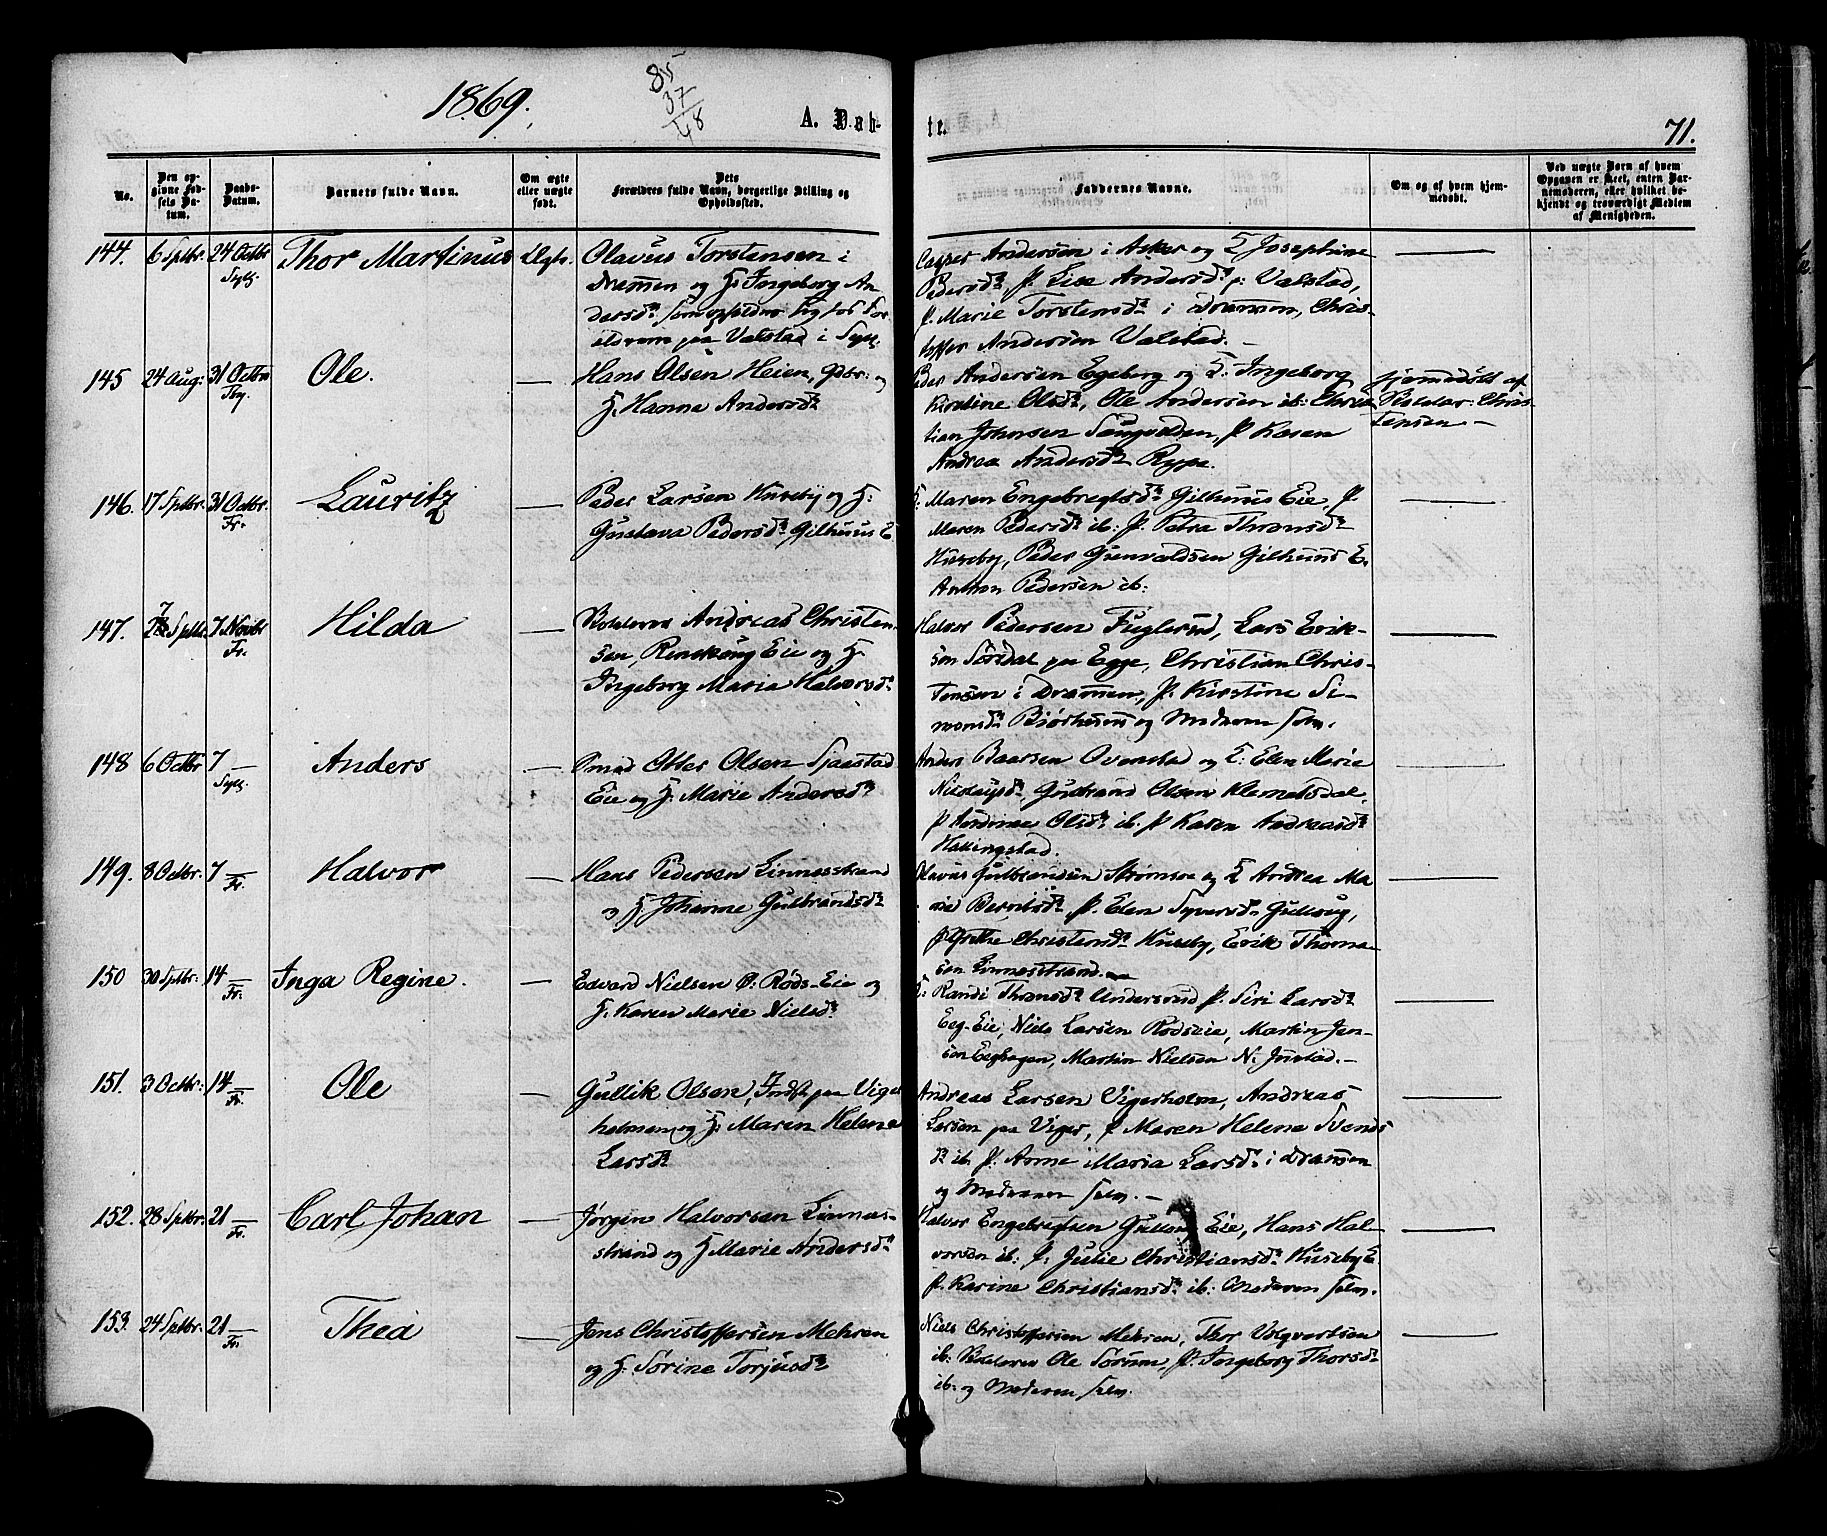 1869.
85
37
48
A. Daab-
te.
71.
No.
Den op-
givne Fød-
sels Da-
tum.
Daabs-
Datum.
Barnets fulde Navn.
Om ægte
eller uægte
født.
Dets
Forældres fulde Navn, borgerlige Stilling og
Opholdssted.
Faddernes Navne.
Om og af hvem hjem-
medøbt.
Ved uægte Barn af hvem
Opgaven er skeet, enten Bar-
nemoderen, eller hvilket be-
kjendt og troværdigt Medlem
af Menigheden.
144. 6 Sptbr. 24 Octbr Thor Martinus Ægt. Olavus Torstensen i
Sylg.
Drammen og H: Ingeborg An-
dersdr som opholder sig hos For-
ældrene paa Valstad i Sylg.
Casper Andersen i Asker og H Josephine
Pedersdr, P. Lise Andersdr p: Valstad,
P. Marie Torstensdr i Drammen, Chris-
toffer Andersen Valstad. —
145 24 Aug: 31 Octbr Ole. — Hans Olsen Heien, Gdbr: og
H. Hanne Andersdr
Peder Andersen Egeberg og H: Ingeborg
Kirstine Olsdr, Ole Andersen ib: Chris-
tian Johnsen P Karen
Andrea Andersdr Rype.
hjemmedøbt af
Chris-
tensen —
146. 17 Sptbr. 31 Octbr. Lauritz — Peder Larsen Huseby og H:
Fr.
Gustava Pedersdr Gilhuus E
K: Maren Engebregtsdr Gilhuus Eie, P
Maren Pedersdr ib: P. Petra Thronsdr
Huseby, Peder Gunvaldsen Gilhuus E.
Anton Pedersen ib:
147. 7 Sptbr. 7 Novbr Hilda — Andreas Christen-
Fr.
sen, Renskoug Eie og H.
Ingeborg Maria Halvorsdr
Halvor Pedersen Fuglerud, Lars Erik-
sen Sørsdal paa Egge, Christian Chris-
tensen i Drammen, P. Kirstine Si-
monsdr Bjørhuus og Moderen selv.
148 6 Octbr 7 — Anders — Smed Otter Olsen Sjaastad
Sylg.
Eie og H. Marie Andersdr
Anders Baarsen Ovenstad og H: Elen Marie
Nicolaysdr, Gulbrand Olsen Klemetsdal,
P Olsdr ib. P Karen Andreasdr
Hallingstad.
149. 8 Octbr. 7 — Halvor — Hans Pedersen Linnesstrand
Fr.
og H Johanne Gulbrandsdr
Olavus Gulbrandsen Strømsøe og H Andrea Ma-
rie Berntsdr P. Elen Syversdr Gullaug,
P Grethe Christensdr Huseby, Erik Thoma-
sen Linnesstrand.
150 30 Sptbr: 14 — Inga Regine. — Edvard Nielsen Ø: Røds-Eie og
Fr.
H. Karen Marie Nielsdr
K: Randi Thronsdr Undersrud P. Siri Larsdr
Eeg-Eie, Niels Larsen Rødseie, Martin Jen-
sen Eeghagen, Martin Nielsen N: Justad. —
151. 3 Octbr: 14 — Ole — Gullik Olsen, Indst paa Viger
Fr.
holmen og H. Maren Helene
Larsdr
Andreas Larsen Vigerholm, Andreas
Larsen paa Viger, P Maren Helene Svends
dr ib P. Anne Maria Larsdr i Drammen
og Moderen selv. —
152. 28 Sptbr: 21 — Carl Johan — Jørgen Halvorsen Linnes-
Fr.
strand og H Marie Andersdr
Halvor Engebregtsen Gullaug Eie, Hans Hal-
vorsen ib: P. Julie Christiansdr Huseby E
P. Karine Christiansdr ib: Moderen selv.
153. 24 Sptbr. 21 — Thea — Jens Christoffersen Mehren
Fr.
og H. Sørine Torjusdr
Niels Christoffersen Mehren, Thor Volqvartsen
ib: Ole Sørum, P. Ingeborg Thorsdr
ib: og Moderen selv.